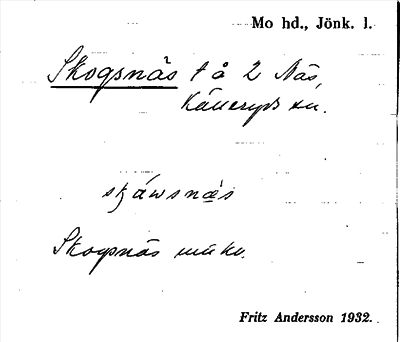 Mo hd., Jönk. l.
Skogsnäs t å 2 Näs,
Källeryds sn.
skåwsnäs
Skogsnäs
Fritz Andersson 1932.